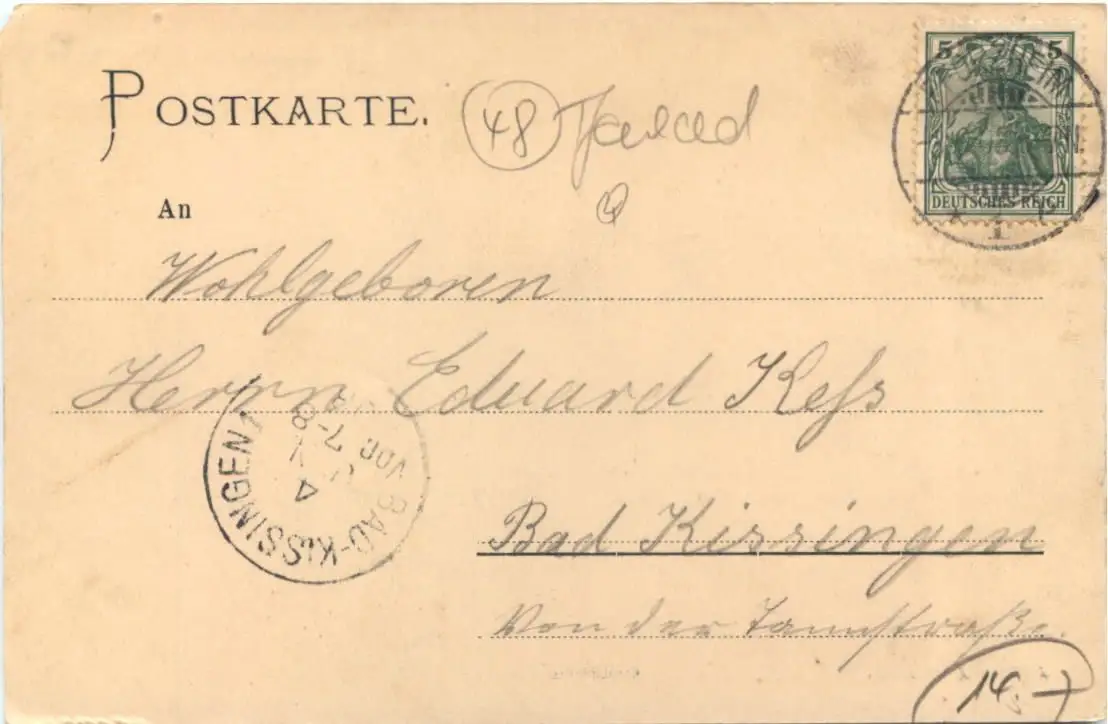 POSTKARTE.
48
5 5
DEUTSCHES REICH
An
Wohlgeboren
Herrn Eduard Keſs
BAD-KISSINGEN 1
VOR 7-8
Bad Kissingen
Von der Tannstraße.
14-